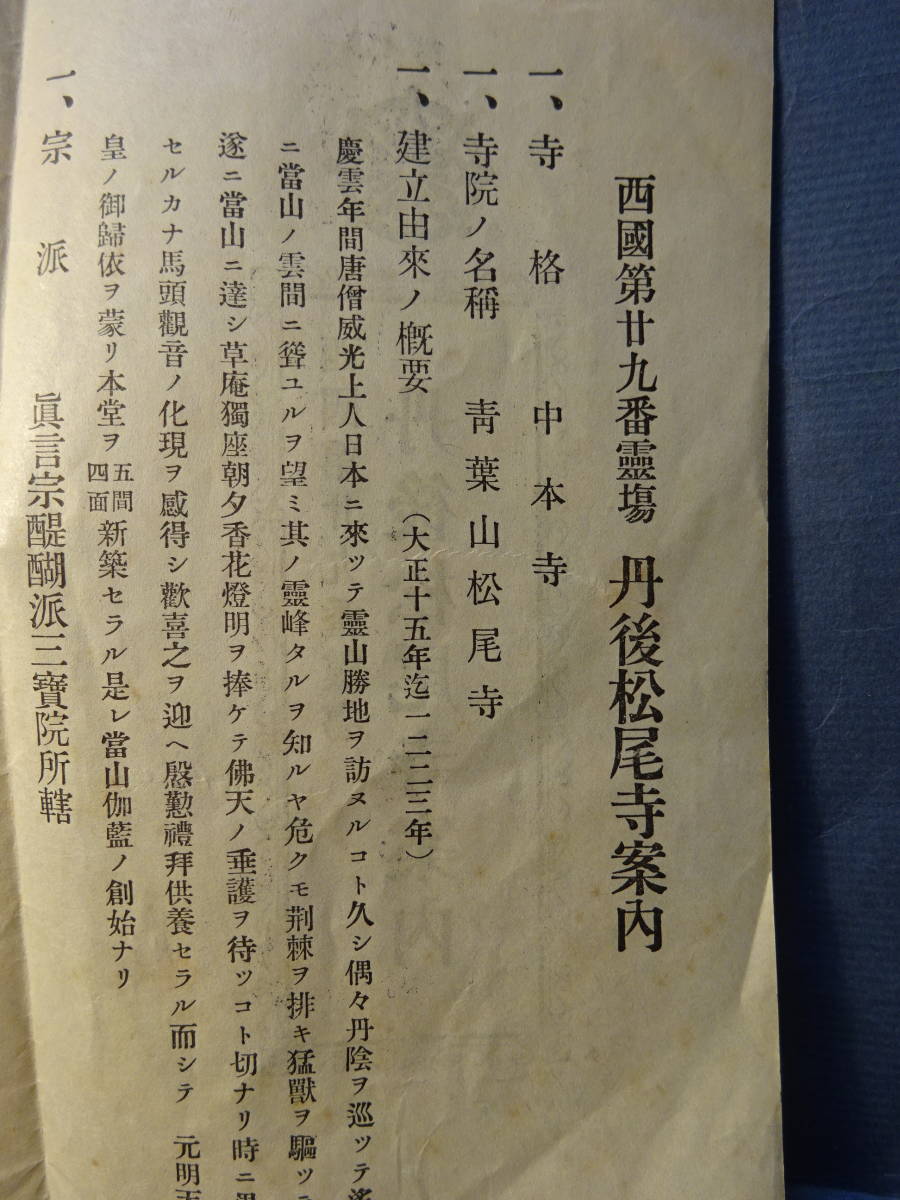 西國第廿九番靈塲 丹後松尾寺案內
一、寺格 中本寺
一、寺院ノ名稱 靑葉山松尾寺
一、建立由來ノ槪要 (大正十五年迄一二二三年)
慶雲年間唐僧威光上人日本ニ來ツテ靈山勝地ヲ訪ヌルコト久シ偶々丹陰ヲ巡ツテ
ニ當山ノ雲間ニ聳ユルヲ望ミ其ノ靈峰タルヲ知ルヤ危クモ荆棘ヲ排キ猛獸ヲ驅ツ
遂ニ當山ニ達シ草庵獨座朝夕香花燈明ヲ捧ケテ佛天ノ垂護ヲ待ツコト切ナリ時ニ
セルカナ馬頭觀音ノ化現ヲ感得シ歡喜之ヲ迎ヘ慇懃禮拜供養セラル而シテ 元明
皇ノ御歸依ヲ蒙リ本堂ヲ五間四面新築セラル是レ當山伽藍ノ創始ナリ
一、宗派 眞言宗醍醐派三寶院所轄